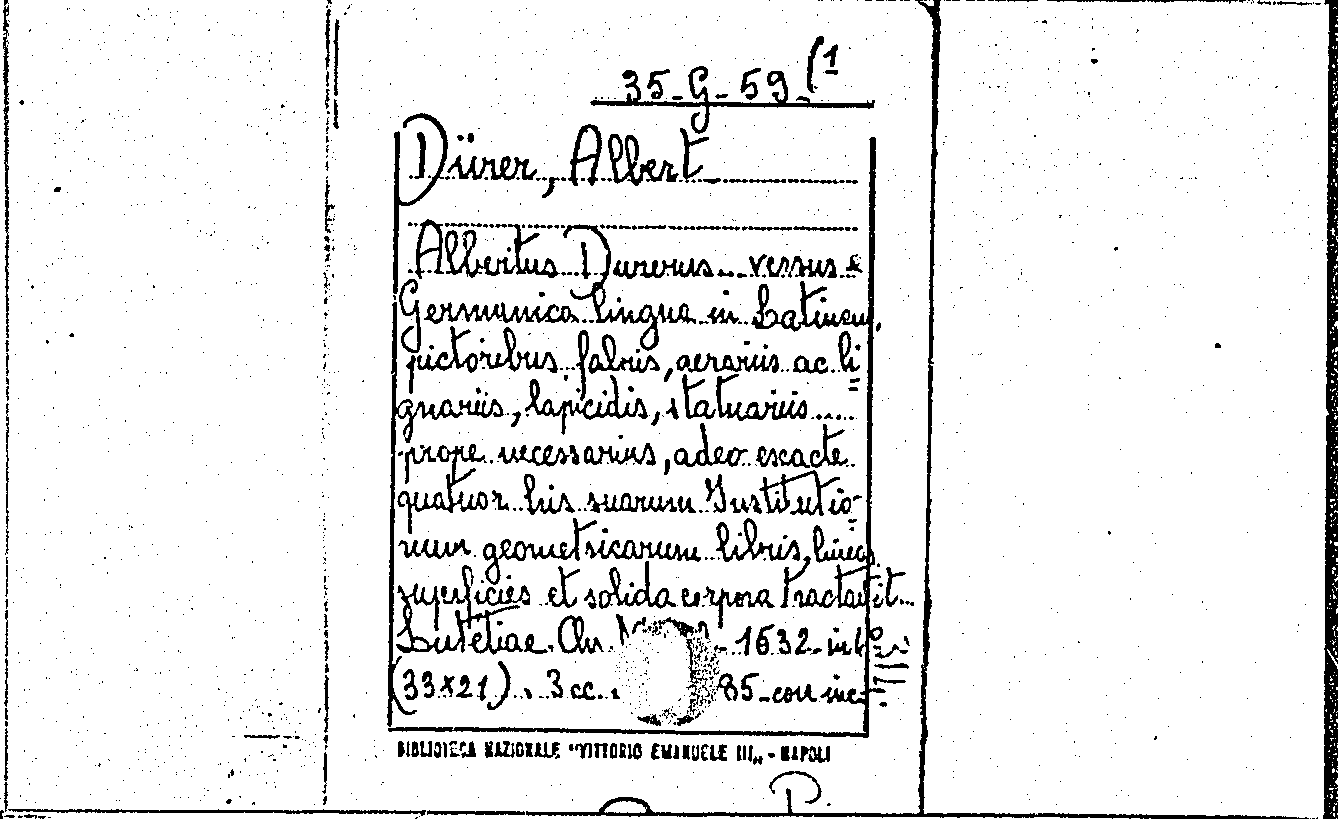 35-G-59-(1
Dürer, Albert
Albertus Durerus... versus e
Germanica lingua in Latinam,
pictoribus fabris, aerariis ac li=
gnariis, lapicidis, statuariis....
prope necessarius, adeo exacte
quatuor his suarum Institutio=
num geometricarum libris, lineas
superficies et solida corpora tractavit...
Lutetiae. Chr. - 1532 - in
(33x21). 3 cc. 85 - con inc=
BIBLIOTECA NAZIONALE "VITTORIO EMANUELE III„ - NAPOLI